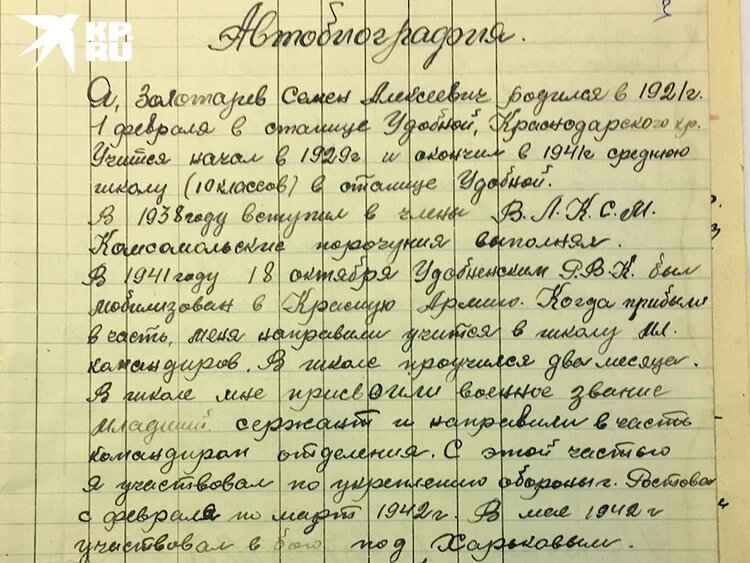 KP.RU
Автобиография.
Я, Золотарев Семен Алексеевич родился в 1921г.
1 февраля в станице Удобной, Краснодарского кр.
Учится начал в 1929г и окончил в 1941г среднюю
школу (10 классов) в станице Удобной.
В 1938 году вступил в члены В.Л.К.С.М.
Комсомольские порочуния выполнял.
В 1941 году 18 октября Удобненским Р.В.К. был
мобилизован в Красную Армию. Когда прибыли
в часть, меня направили учится в школу мл.
командиров. В школе проучился два месяца.
В школе мне присвоили военное звание
младший сержант и направили в часть
командиром отделения. С этой частью
я участвовал по укреплению обороны г. Ростова
с февраля по март 1942г. В мае 1942г
участвовал в бою под Харьковым.